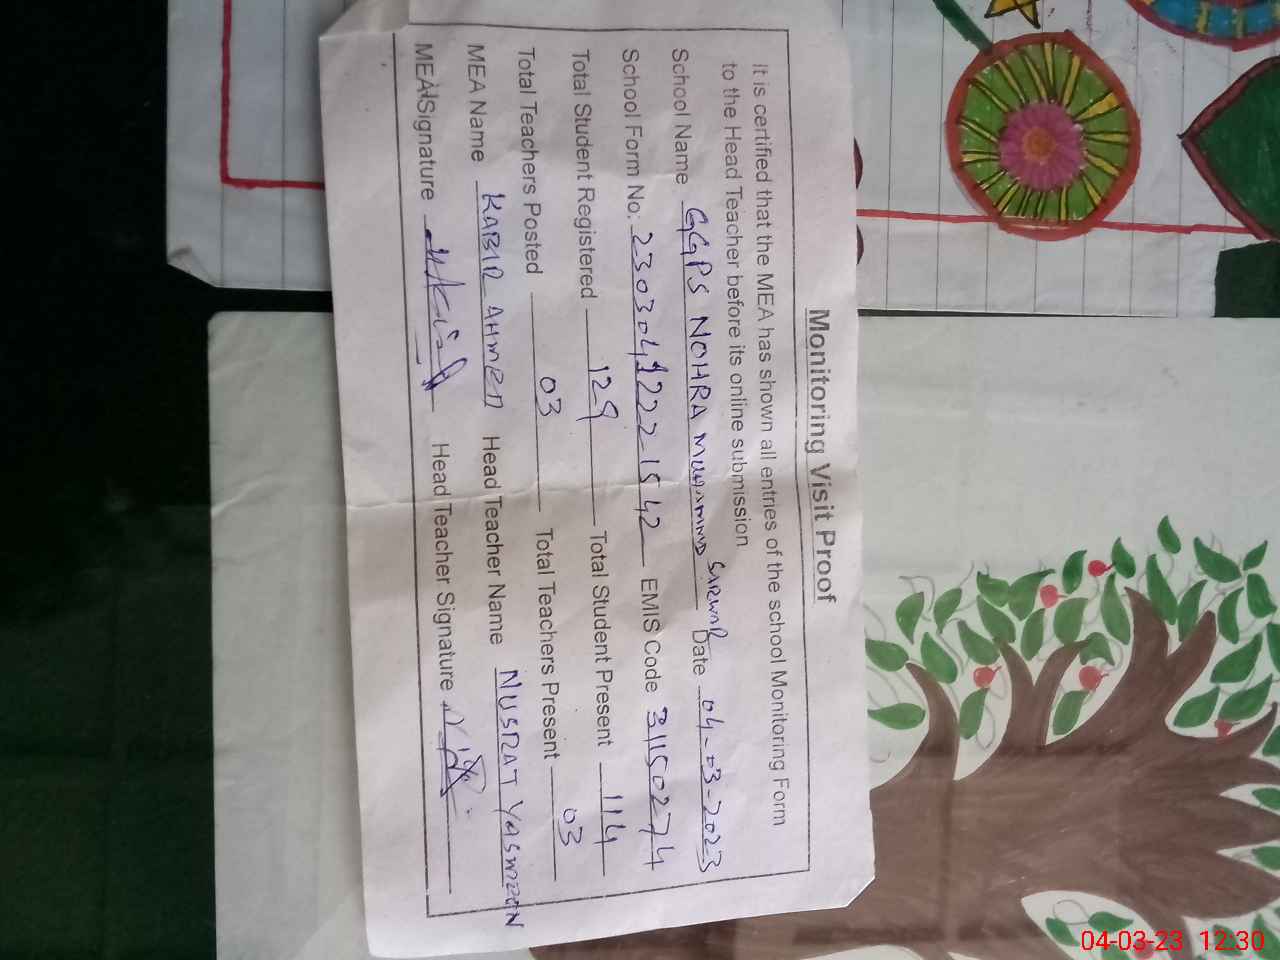 Monitoring Visit Proof
It is certified that the MEA has shown all entries of the school Monitoring Form
to the Head Teacher before its online submission
School Name GGPS NOHRA MUHAMMAD SARWAR Date 04-03-2023
School Form No: 2303041222-1542 EMIS Code 31150274
Total Student Registered 129 Total Student Present 114
Total Teachers Posted 03 Total Teachers Present 03
MEA Name KABIR AHMED Head Teacher Name NUSRAT YASMEEN
MEA Signature Head Teacher Signature
04-03-23 12:30